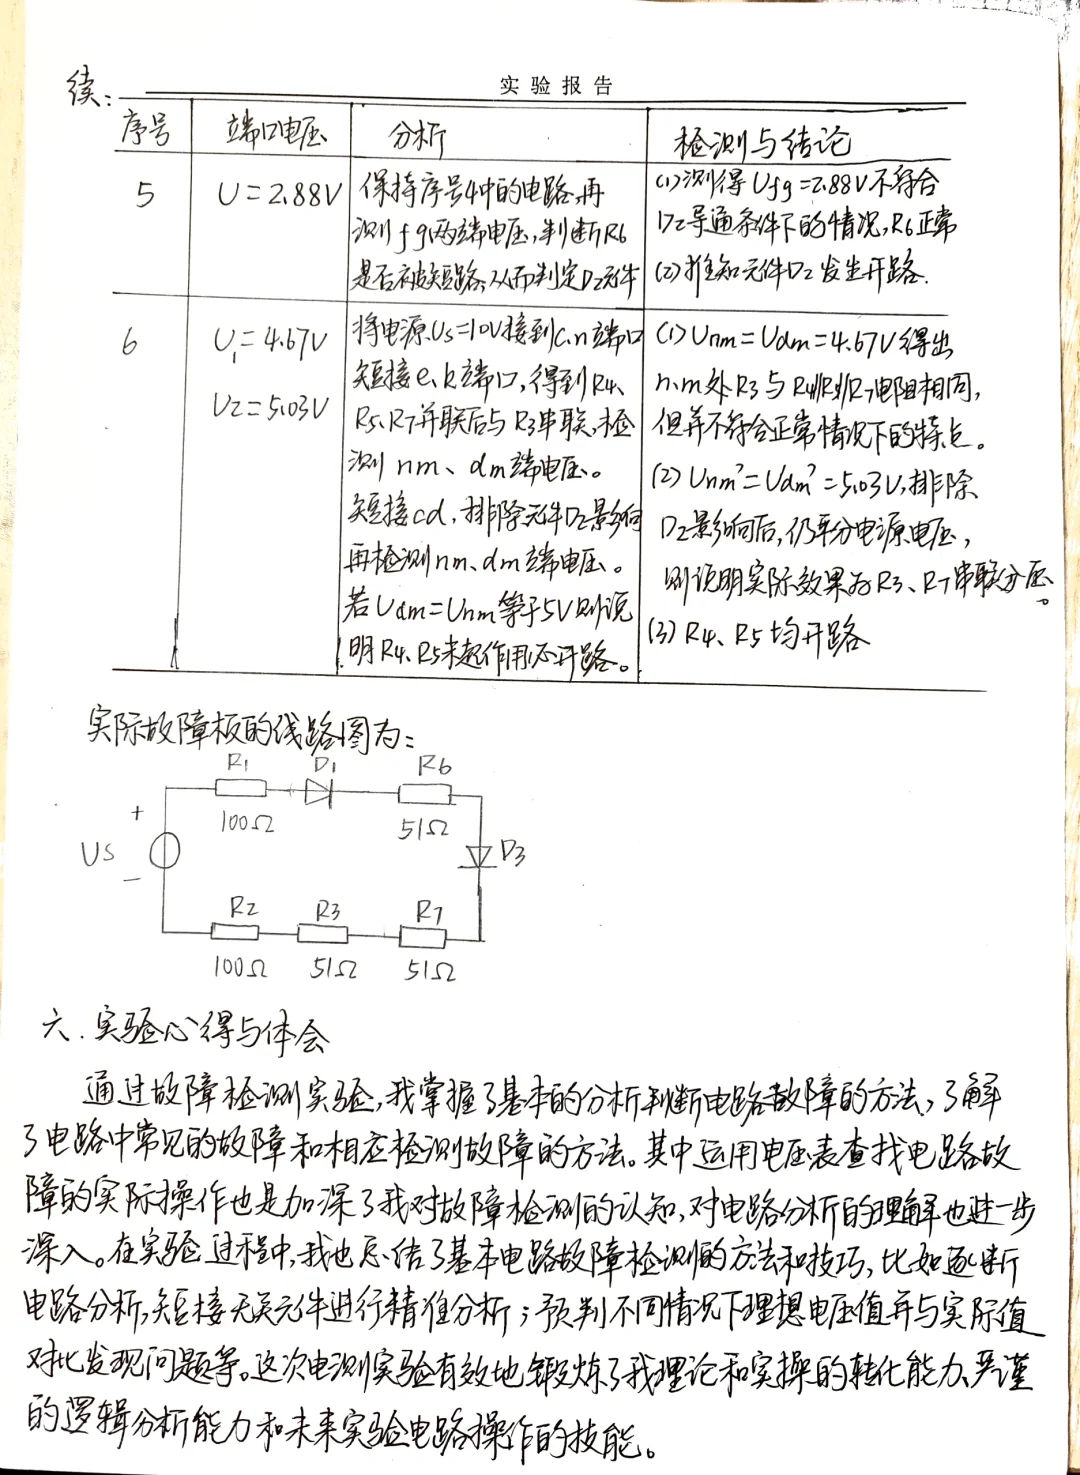 实验报告
续:
序号 端口电压 分析 检测与结论
5 U=2.88V 保持序号4中的电路,再
测fg两端电压,判断R6
是否被短路,从而判定D2元件
(1)测得Ufg=2.88V不符合
D2导通条件下的情况,R6正常
(2)推知元件D2发生开路.
6 U₁=4.67V
U2=5.03V
将电源Us=10V接到c,n端口
短接e、k端口,得到R4、
R5、R7并联后与R3串联,检
测nm、dm端电压。
短接cd,排除元件D2影响
再检测nm、dm端电压。
若Udm=Unm等于5V则说
明R4、R5未起作用亦开路。
(1)Unm=Udm=4.67V得出
n、m处R3与R4//R5//R7电阻相同,
但并不符合正常情况下的特点。
(2)Unm'=Udm'=5.03V,排除
D2影响后,仍平分电源电压,
则说明实际效果为R3、R7串联分压。
(3)R4、R5均开路
实际故障板的线路图为:
R1 D1 R6
100Ω 51Ω
+
US
−
D3
R2 R3 R7
100Ω 51Ω 51Ω
六.实验心得与体会
通过故障检测实验,我掌握了基本的分析判断电路故障的方法,了解
了电路中常见的故障和相应检测故障的方法。其中运用电压表查找电路故
障的实际操作也是加深了我对故障检测的认知,对电路分析的理解也进一步
深入。在实验过程中,我也总结了基本电路故障检测的方法和技巧,比如逐断
电路分析,短接无关元件进行精准分析;预判不同情况下理想电压值并与实际值
对比发现问题等。这次电测实验有效地锻炼了我理论和实操的转化能力、严谨
的逻辑分析能力和未来实验电路操作的技能。